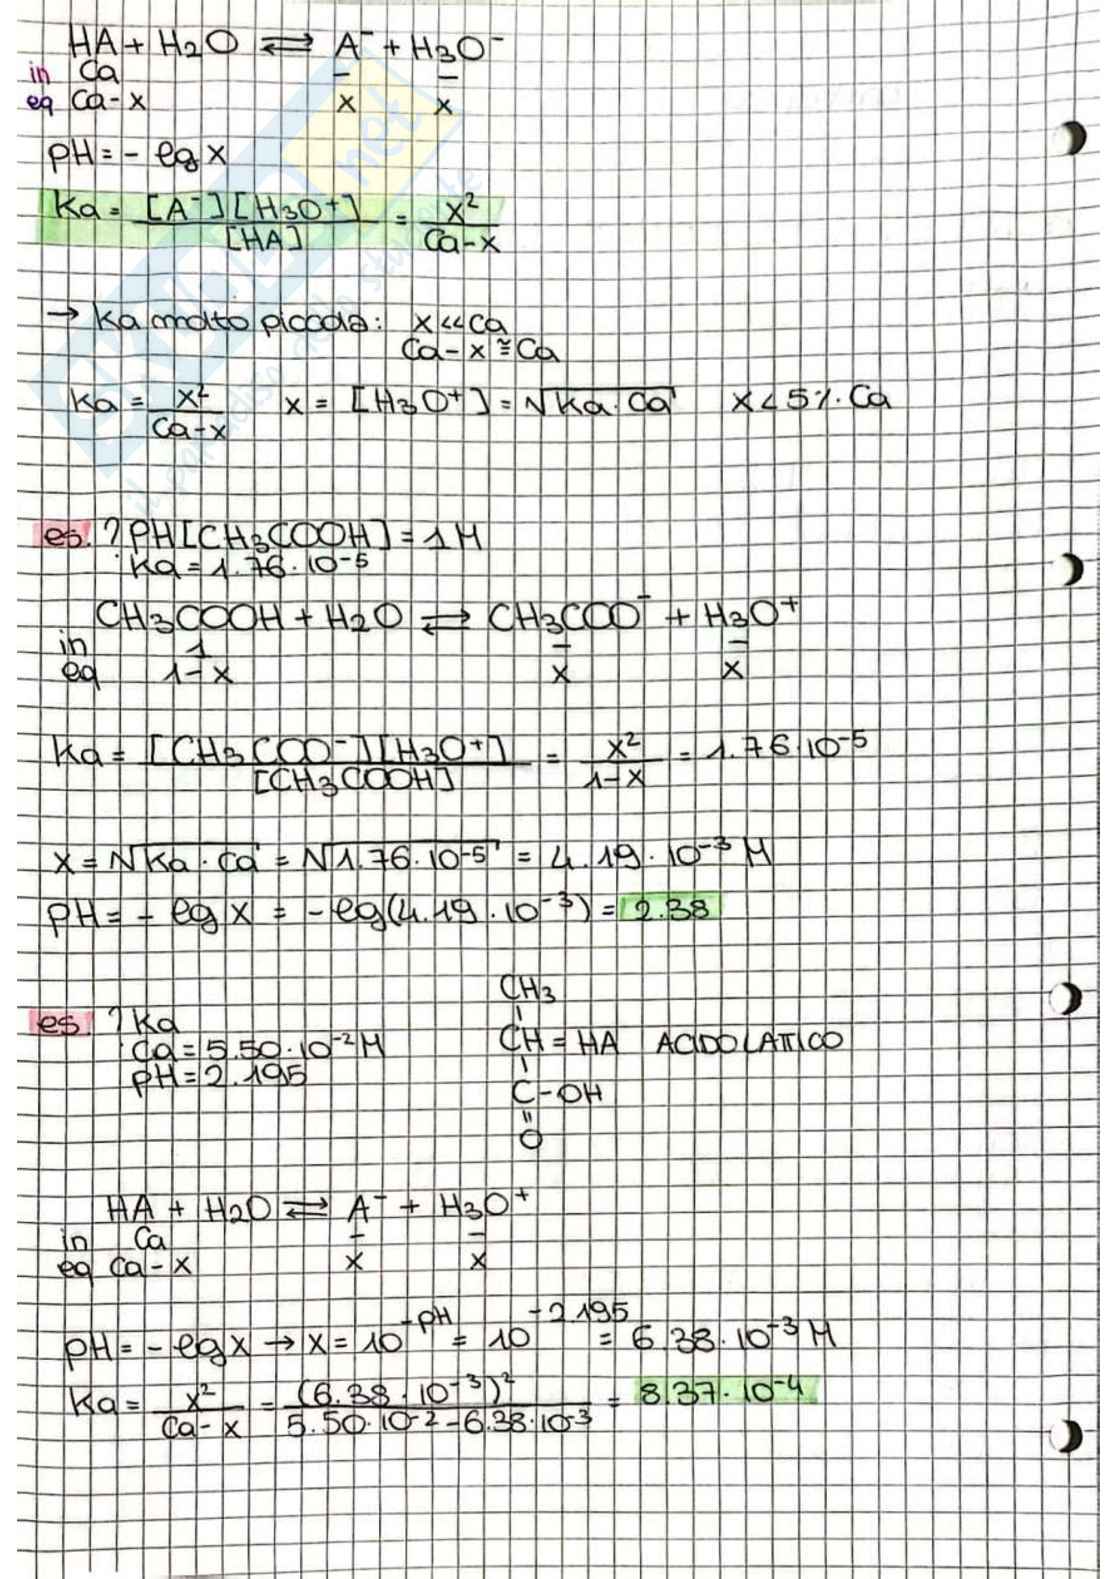 HA + H2O ⇌ A⁻ + H3O⁻
in Ca – –
eq Ca-x x x
pH = - lg x
Ka = [A⁻][H3O⁺] / [HA] = x² / Ca-x
→ Ka molto piccola: x << Ca
Ca-x ≅ Ca
Ka = x² / Ca-x x = [H3O⁺] = √Ka·Ca x < 5%·Ca
es. ? pH [CH3COOH] = 1M
Ka = 1.76·10⁻⁵
CH3COOH + H2O ⇌ CH3COO⁻ + H3O⁺
in 1 – –
eq 1-x x x
Ka = [CH3COO⁻][H3O⁺] / [CH3COOH] = x² / 1-x = 1.76·10⁻⁵
x = √Ka·Ca = √1.76·10⁻⁵ = 4.19·10⁻³ M
pH = - lg x = -lg(4.19·10⁻³) = 2.38
CH3
es. ? Ka
Ca = 5.50·10⁻² M CH = HA ACIDO LATTICO
pH = 2.195
C-OH
O
HA + H2O ⇌ A⁻ + H3O⁺
in Ca – –
eq Ca-x x x
pH = - lg x → x = 10^-pH = 10^-2.195 = 6.38·10⁻³ M
Ka = x² / Ca-x = (6.38·10⁻³)² / 5.50·10⁻² - 6.38·10⁻³ = 8.37·10⁻⁴